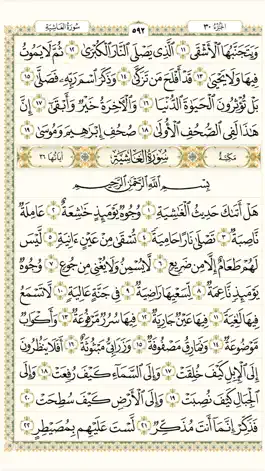 سُورَةُ الغَاشِيَةِ ٥٩٢ الجُزْءُ ٣٠
وَيَتَجَنَّبُهَا ٱلْأَشْقَى ١١ ٱلَّذِى يَصْلَى ٱلنَّارَ ٱلْكُبْرَىٰ ١٢ ثُمَّ لَا يَمُوتُ
فِيهَا وَلَا يَحْيَىٰ ١٣ قَدْ أَفْلَحَ مَن تَزَكَّىٰ ١٤ وَذَكَرَ ٱسْمَ رَبِّهِۦ فَصَلَّىٰ ١٥
بَلْ تُؤْثِرُونَ ٱلْحَيَوٰةَ ٱلدُّنْيَا ١٦ وَٱلْـَٔاخِرَةُ خَيْرٌ وَأَبْقَىٰٓ ١٧ إِنَّ
هَـٰذَا لَفِى ٱلصُّحُفِ ٱلْأُولَىٰ ١٨ صُحُفِ إِبْرَٰهِيمَ وَمُوسَىٰ ١٩
مَكِّيَّة سُورَةُ الغَاشِيَةِ آيَاتُهَا ٢٦
بِسْمِ ٱللَّهِ ٱلرَّحْمَـٰنِ ٱلرَّحِيمِ
هَلْ أَتَىٰكَ حَدِيثُ ٱلْغَـٰشِيَةِ ١ وُجُوهٌ يَوْمَئِذٍ خَـٰشِعَةٌ ٢ عَامِلَةٌ
نَّاصِبَةٌ ٣ تَصْلَىٰ نَارًا حَامِيَةً ٤ تُسْقَىٰ مِنْ عَيْنٍ ءَانِيَةٍ ٥ لَّيْسَ
لَهُمْ طَعَامٌ إِلَّا مِن ضَرِيعٍ ٦ لَّا يُسْمِنُ وَلَا يُغْنِى مِن جُوعٍ ٧ وُجُوهٌ
يَوْمَئِذٍ نَّاعِمَةٌ ٨ لِّسَعْيِهَا رَاضِيَةٌ ٩ فِى جَنَّةٍ عَالِيَةٍ ١٠ لَّا تَسْمَعُ
فِيهَا لَـٰغِيَةً ١١ فِيهَا عَيْنٌ جَارِيَةٌ ١٢ فِيهَا سُرُرٌ مَّرْفُوعَةٌ ١٣ وَأَكْوَابٌ
مَّوْضُوعَةٌ ١٤ وَنَمَارِقُ مَصْفُوفَةٌ ١٥ وَزَرَابِىُّ مَبْثُوثَةٌ ١٦ أَفَلَا يَنظُرُونَ
إِلَى ٱلْإِبِلِ كَيْفَ خُلِقَتْ ١٧ وَإِلَى ٱلسَّمَآءِ كَيْفَ رُفِعَتْ ١٨ وَإِلَى
ٱلْجِبَالِ كَيْفَ نُصِبَتْ ١٩ وَإِلَى ٱلْأَرْضِ كَيْفَ سُطِحَتْ ٢٠
فَذَكِّرْ إِنَّمَآ أَنتَ مُذَكِّرٌ ٢١ لَّسْتَ عَلَيْهِم بِمُصَيْطِرٍ ٢٢